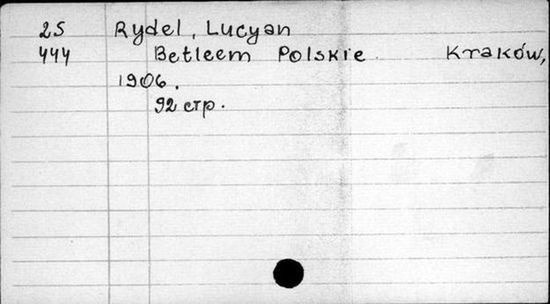 25 Rydel, Lucyan
444 Betleem Polskie Kraków,
1906.
92 стр.